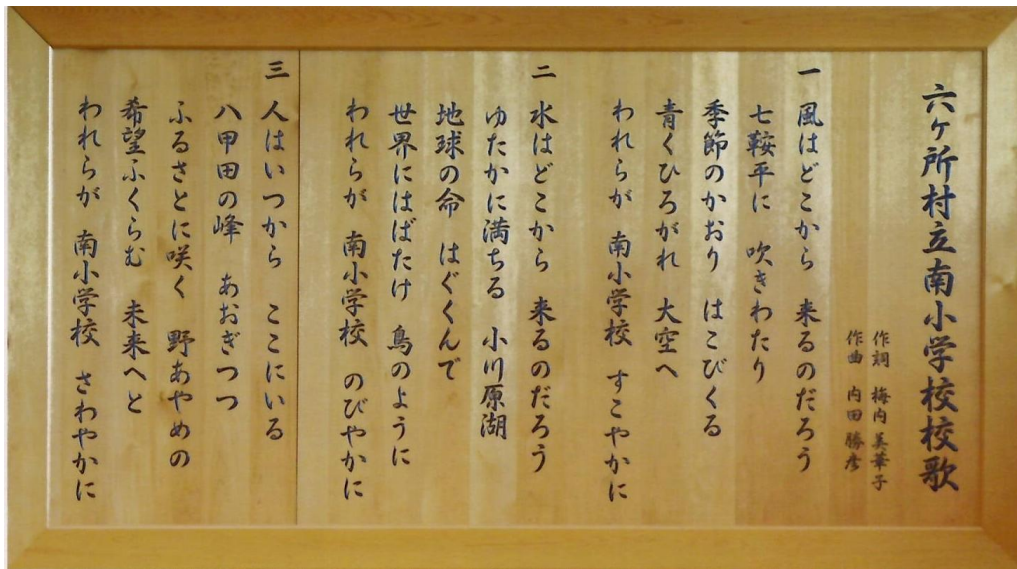 六ヶ所村立南小学校校歌
作詞 梅内 美華子
作曲 内田 勝彦
一 風はどこから 来るのだろう
七鞍平に 吹きわたり
季節のかおり はこびくる
青くひろがれ 大空へ
われらが 南小学校 すこやかに
二 水はどこから 来るのだろう
ゆたかに満ちる 小川原湖
地球の命 はぐくんで
世界にはばたけ 鳥のように
われらが 南小学校 のびやかに
三 人はいつから ここにいる
八甲田の峰 あおぎつつ
ふるさとに咲く 野あやめの
希望ふくらむ 未来へと
われらが 南小学校 さわやかに